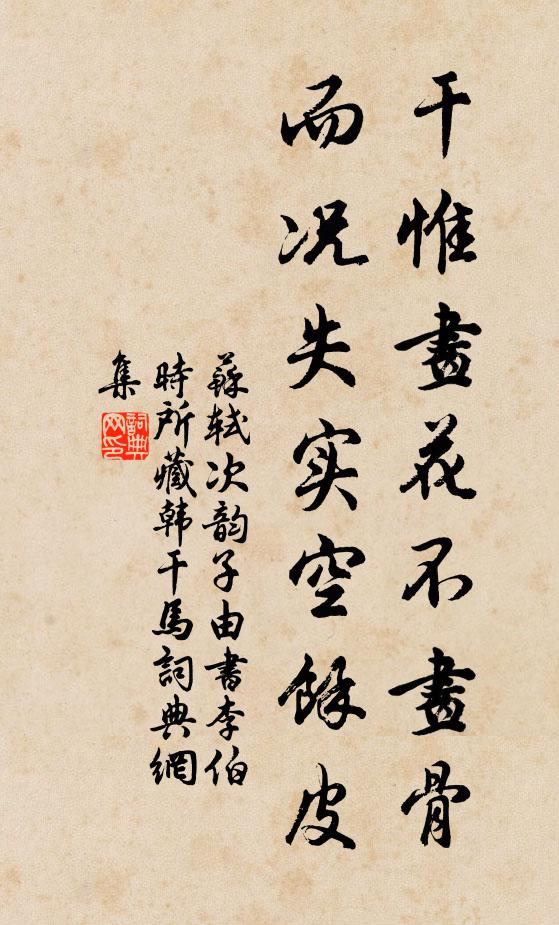 干惟畫花不畫骨
而况失实空餘皮
蘇軾次韵子由書李伯
時所藏韩干馬詞典網
集
詞典
网印